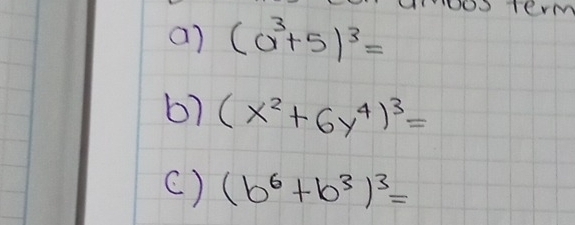 ambos term
a) (a³+5)³=
b) (x²+6y⁴)³=
c) (b⁶+b³)³=